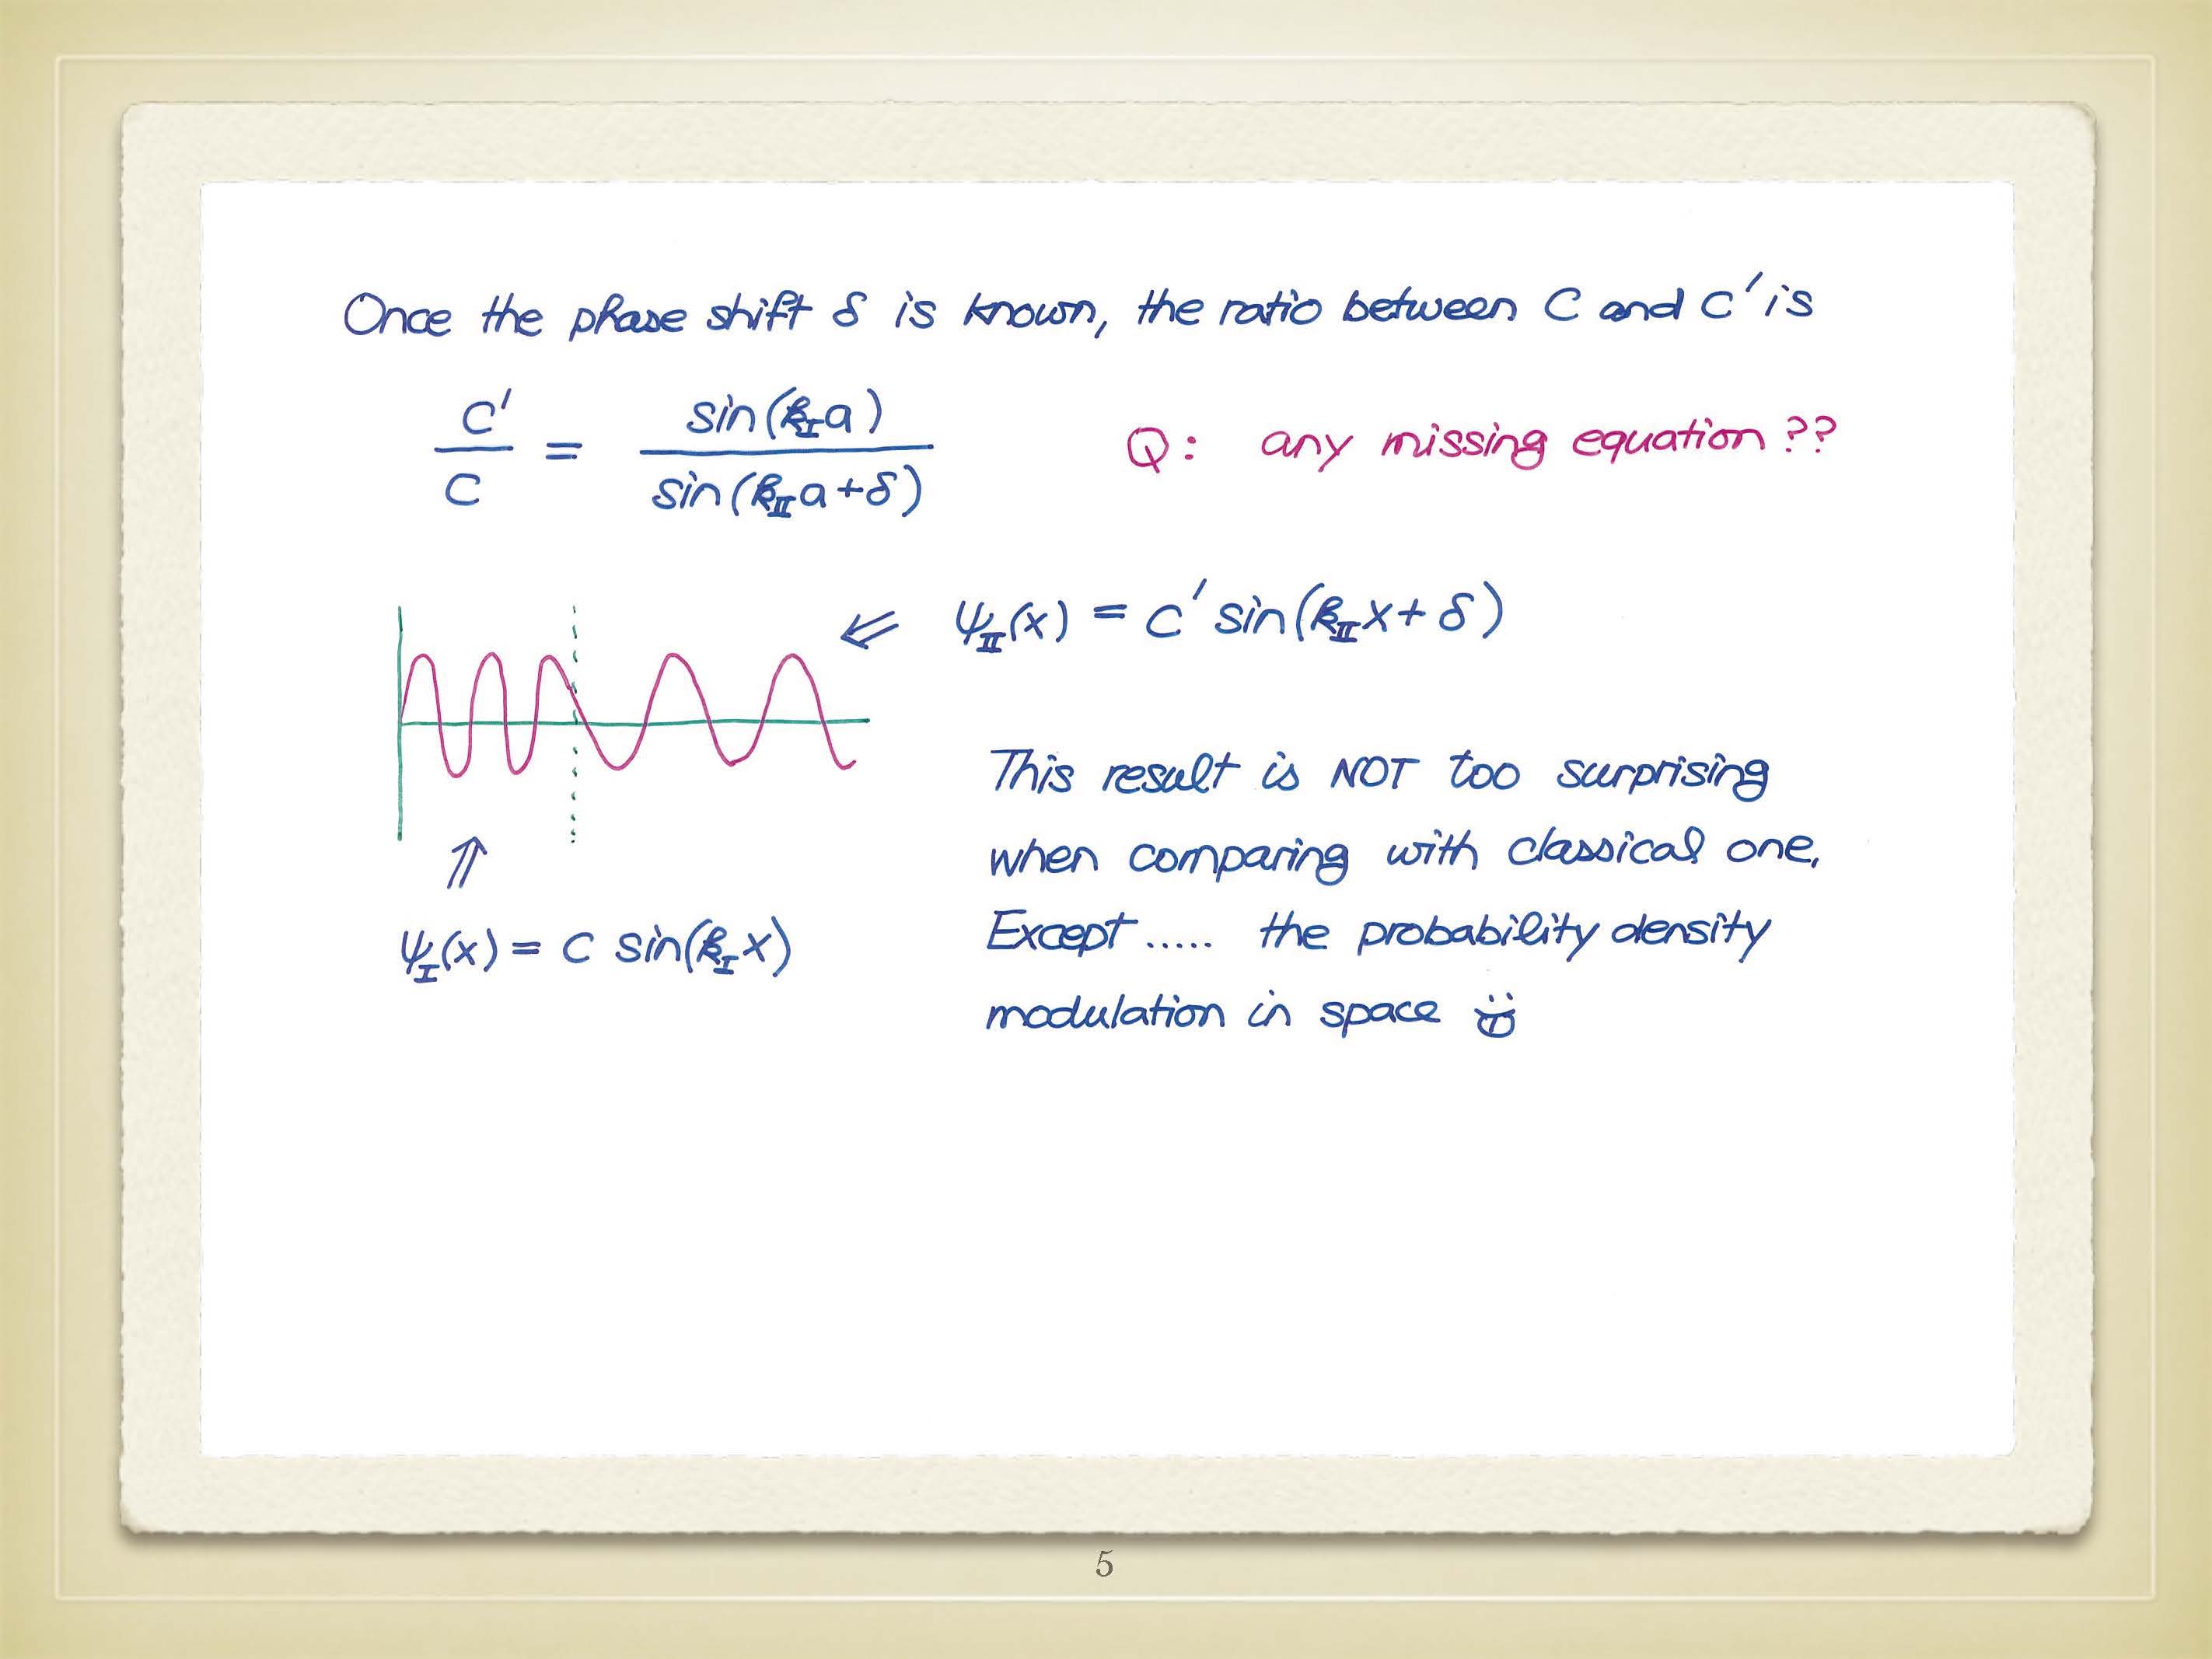 Once the phase shift δ is known, the ratio between C and C' is
C'/C = sin(k_I a) / sin(k_II a + δ)
Q: any missing equation ??
ψ_II(x) = C' sin(k_II x + δ)
ψ_I(x) = C sin(k_I x)
This result is NOT too surprising
when comparing with classical one.
Except ..... the probability density
modulation in space
5